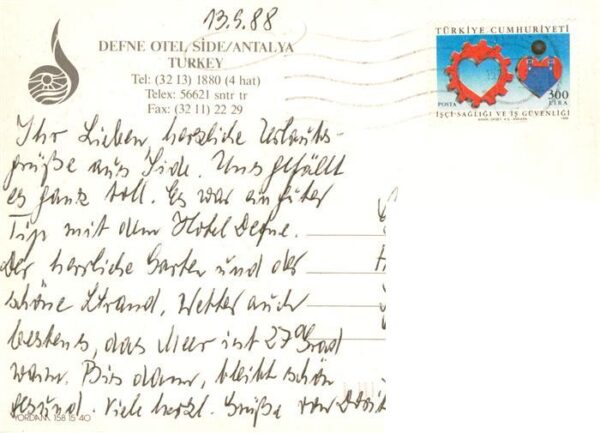 13.9.88
DEFNE OTEL, SİDE/ANTALYA
TURKEY
Tel: (32 13) 1880 (4 hat)
Telex: 56621 sntr tr
Fax: (32 11) 22 29
TÜRKİYE CUMHURİYETİ
POSTA
300
LİRA
İŞÇİ SAĞLIĞI VE İŞ GÜVENLİĞİ
Ihr Lieben, herzliche Urlaubs-
grüße aus Side. Uns gefällt
es ganz toll. Es war ein guter
Tip mit dem Hotel Defne.
Der herrliche Garten und der
schöne Strand, Wetter auch
bestens, das Meer ist 27 Grad
warm. Bis dann, bleibt schön
gesund. Viele herzl. Grüße von
YORDAM 158 15 40